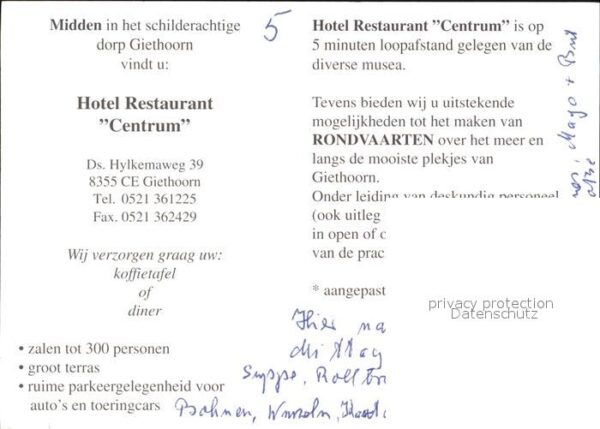 Midden in het schilderachtige
dorp Giethoorn
vindt u:
Hotel Restaurant
”Centrum”
Ds. Hylkemaweg 39
8355 CE Giethoorn
Tel. 0521 361225
Fax. 0521 362429
Wij verzorgen graag uw:
koffietafel
of
diner
• zalen tot 300 personen
• groot terras
• ruime parkeergelegenheid voor
auto's en toeringcars
5
Hotel Restaurant ”Centrum” is op
5 minuten loopafstand gelegen van de
diverse musea.
Tevens bieden wij u uitstekende
mogelijkheden tot het maken van
RONDVAARTEN over het meer en
langs de mooiste plekjes van
Giethoorn.
Onder leiding van deskundig personeel
(ook uitleg
in open of
van de prac
* aangepast
privacy protection
Datenschutz
Hier
Suppe,
Bohnen,
Mayo +